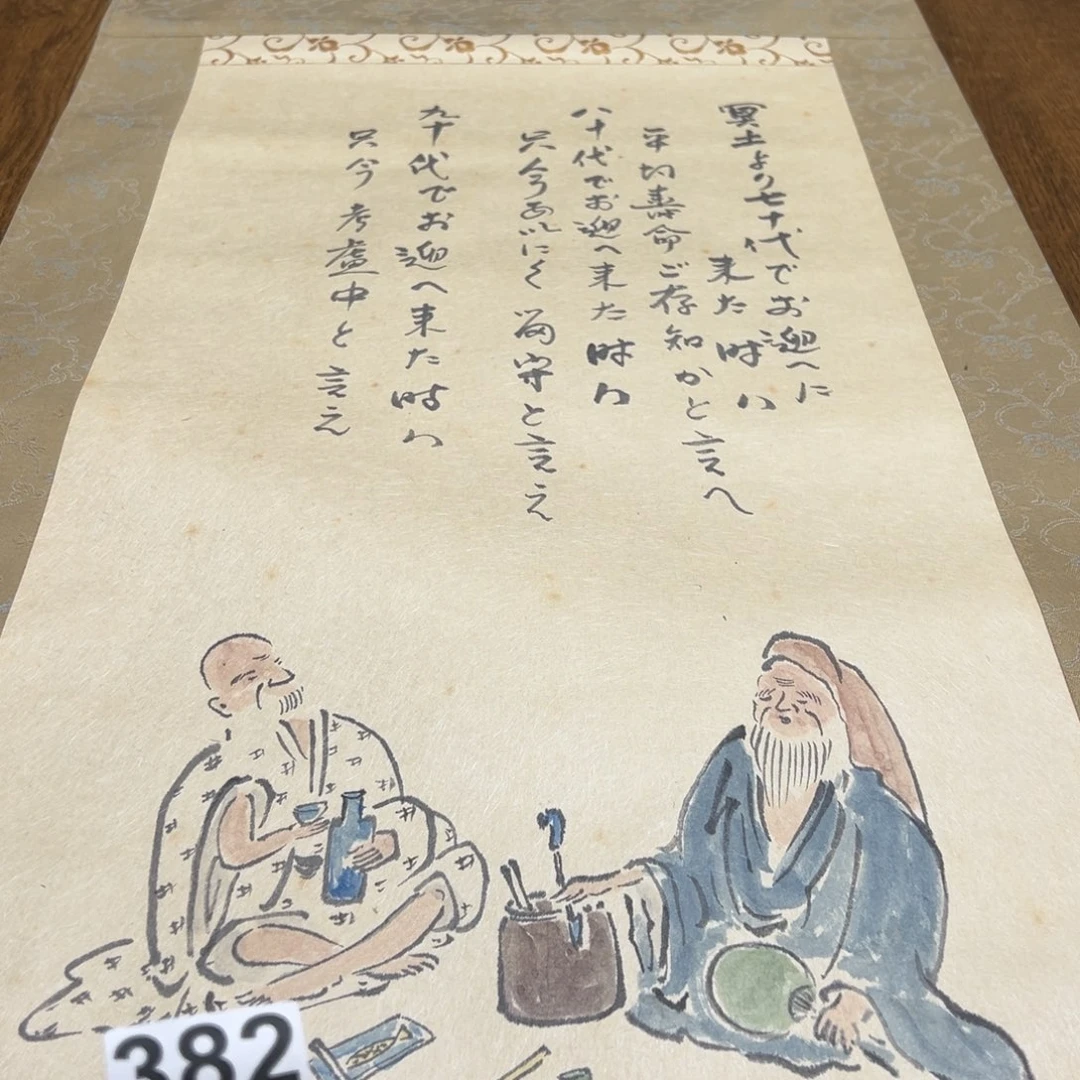 冥土より七十代でお迎へに
来た時ハ
平均寿命ご存知かと言へ
八十代でお迎へ来た時ハ
只今あいにく留守と言え
九十代でお迎へ来た時ハ
只今考慮中と言え
382